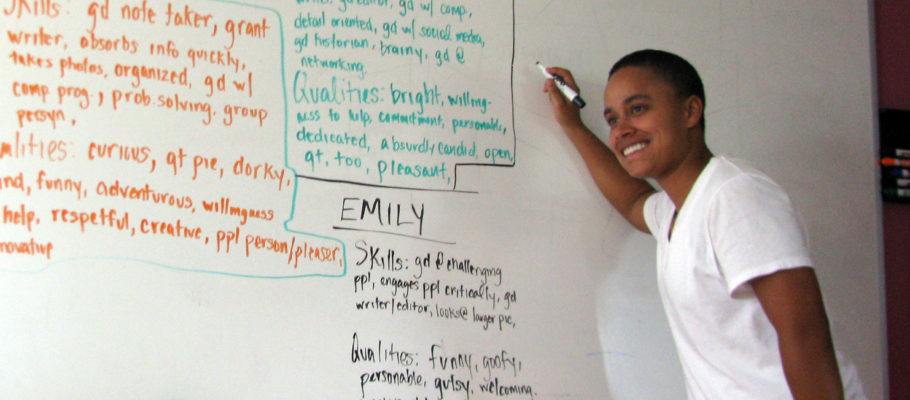 Skills: gd note taker, grant
writer, absorbs info quickly,
takes photos, organized, gd w/
comp prog., prob. solving. group
persyn,
curious, qt pie, dorky,
funny, adventurous, willingness
help, respetful, creative, ppl person/pleaser,
gd w/ comp,
detail oriented, gd w/ social media,
gd historian, brainy, gd @
networking,
Qualities: bright, willing-
ness to help, commitment, personable,
dedicated, absurdly candid, open,
qt, too, pleasant,
EMILY
Skills: gd @ challenging
ppl, engages ppl critically, gd
writer/editor, looks@ larger pic,
Qualities: funny, goofy,
personable, gutsy, welcoming.